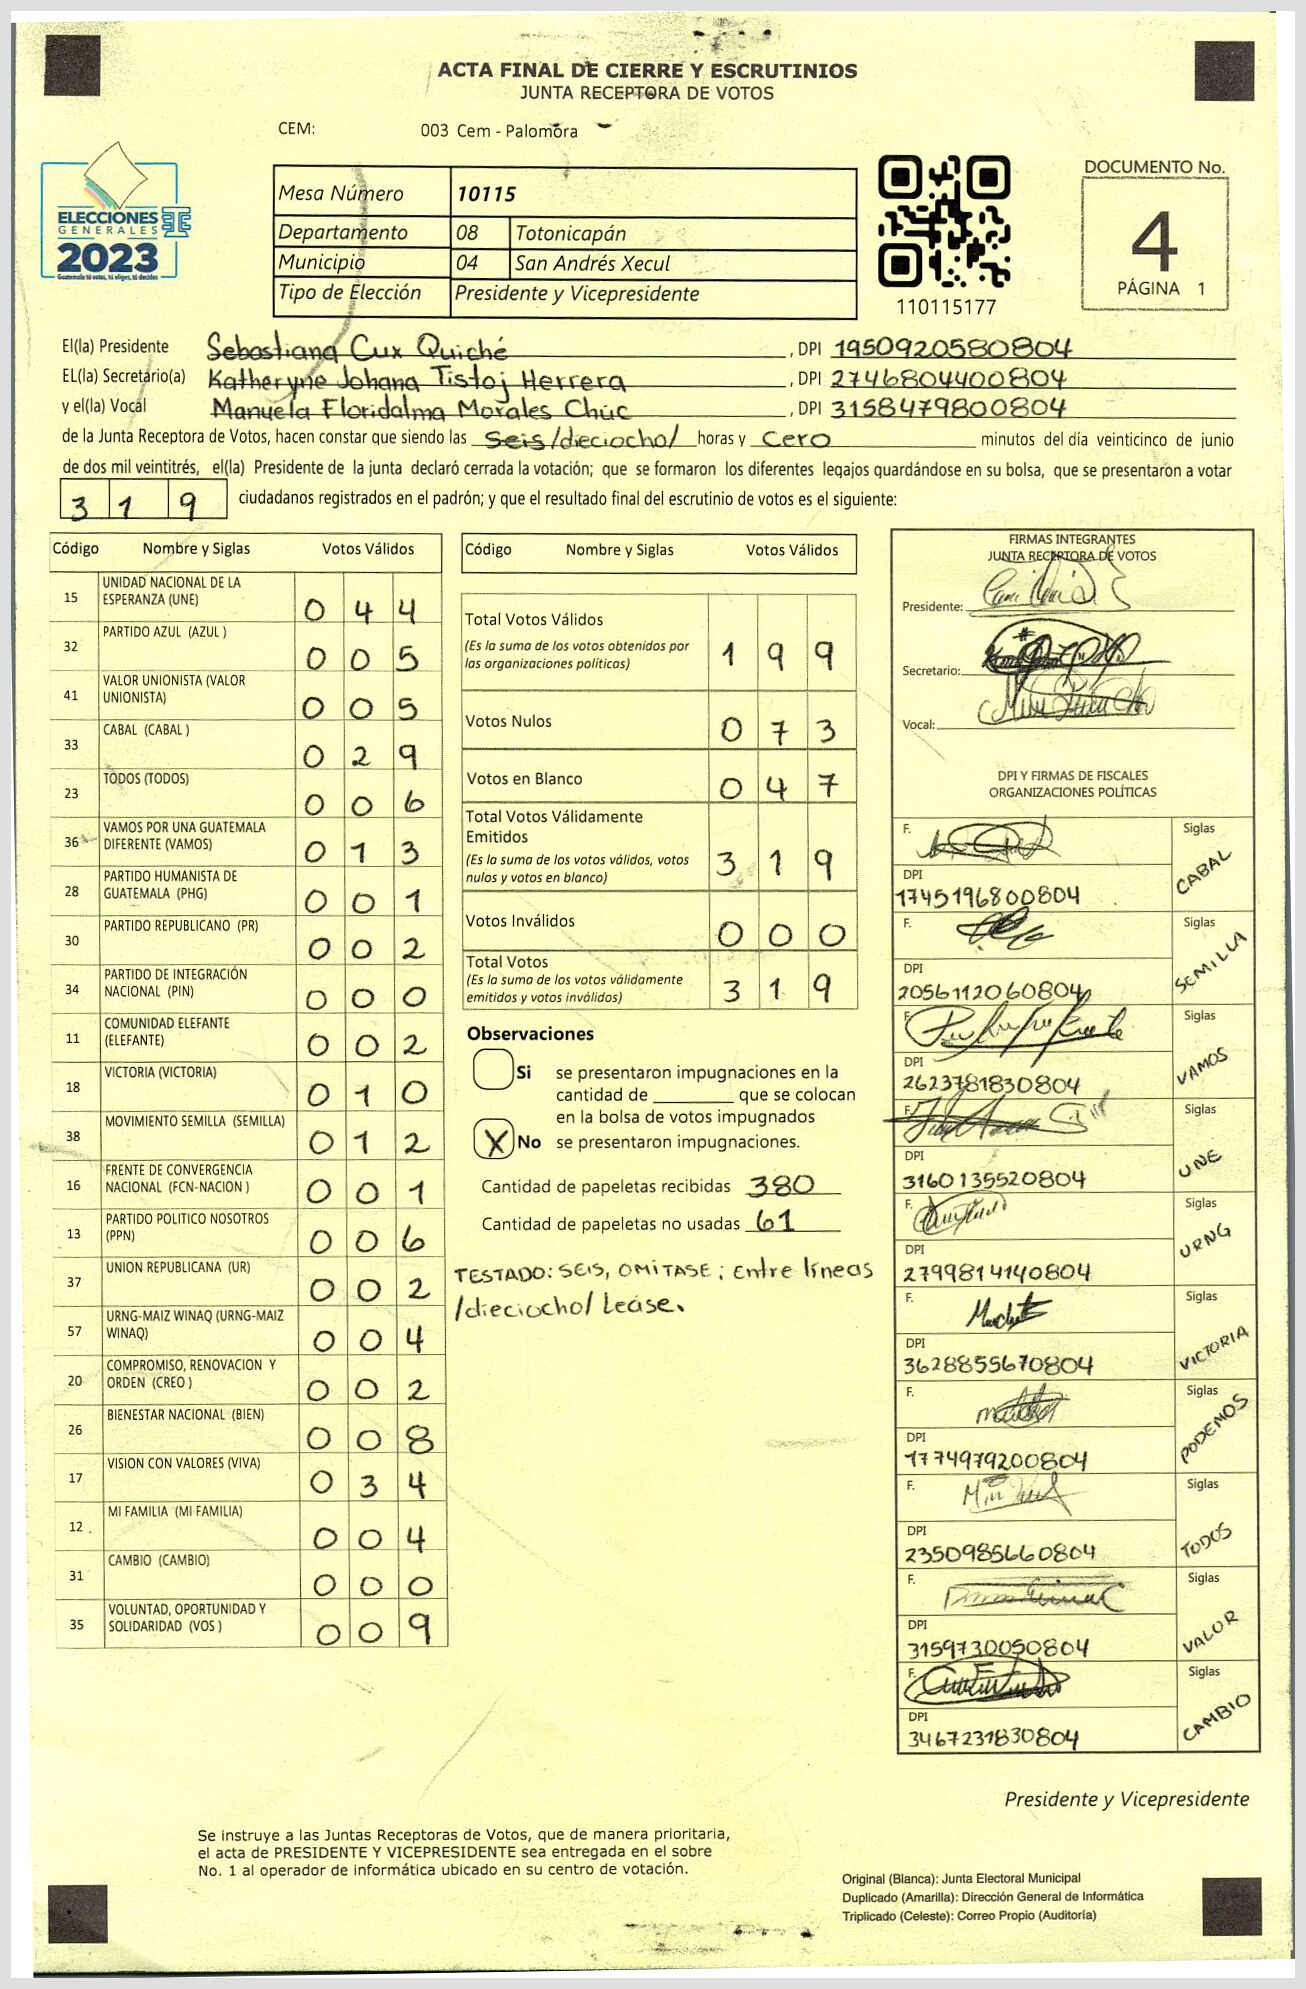 ACTA FINAL DE CIERRE Y ESCRUTINIOS
JUNTA RECEPTORA DE VOTOS
CEM: 003 Cem - Palomora
ELECCIONES
GENERALES
2023
Guatemala tú votas, tú eliges, tú decides
Mesa Número 10115
Departamento 08 Totonicapán
Municipio 04 San Andrés Xecul
Tipo de Elección Presidente y Vicepresidente
110115177
DOCUMENTO No.
4
PÁGINA 1
El(la) Presidente Sebastiana Cux Quiché, DPI 1950920580804
EL(la) Secretario(a) Katheryne Johana Tistoj Herrera, DPI 2746804400804
y el(la) Vocal Manuela Floridalma Morales Chúc, DPI 3158479800804
de la Junta Receptora de Votos, hacen constar que siendo las Seis/dieciocho/ horas y Cero minutos del día veinticinco de junio
de dos mil veintitrés, el(la) Presidente de la junta declaró cerrada la votación; que se formaron los diferentes legajos quardándose en su bolsa, que se presentaron a votar
3 1 9 ciudadanos registrados en el padrón; y que el resultado final del escrutinio de votos es el siguiente:
Código Nombre y Siglas Votos Válidos
15 UNIDAD NACIONAL DE LA ESPERANZA (UNE) 0 4 4
32 PARTIDO AZUL (AZUL ) 0 0 5
41 VALOR UNIONISTA (VALOR UNIONISTA) 0 0 5
33 CABAL (CABAL ) 0 2 9
23 TODOS (TODOS) 0 0 6
36 VAMOS POR UNA GUATEMALA DIFERENTE (VAMOS) 0 1 3
28 PARTIDO HUMANISTA DE GUATEMALA (PHG) 0 0 1
30 PARTIDO REPUBLICANO (PR) 0 0 2
34 PARTIDO DE INTEGRACIÓN NACIONAL (PIN) 0 0 0
11 COMUNIDAD ELEFANTE (ELEFANTE) 0 0 2
18 VICTORIA (VICTORIA) 0 1 0
38 MOVIMIENTO SEMILLA (SEMILLA) 0 1 2
16 FRENTE DE CONVERGENCIA NACIONAL (FCN-NACION ) 0 0 1
13 PARTIDO POLITICO NOSOTROS (PPN) 0 0 6
37 UNION REPUBLICANA (UR) 0 0 2
57 URNG-MAIZ WINAQ (URNG-MAIZ WINAQ) 0 0 4
20 COMPROMISO, RENOVACION Y ORDEN (CREO ) 0 0 2
26 BIENESTAR NACIONAL (BIEN) 0 0 8
17 VISION CON VALORES (VIVA) 0 3 4
12 MI FAMILIA (MI FAMILIA) 0 0 4
31 CAMBIO (CAMBIO) 0 0 0
35 VOLUNTAD, OPORTUNIDAD Y SOLIDARIDAD (VOS ) 0 0 9
Código Nombre y Siglas Votos Válidos
Total Votos Válidos 1 9 9
(Es la suma de los votos obtenidos por
las organizaciones políticas)
Votos Nulos 0 7 3
Votos en Blanco 0 4 7
Total Votos Válidamente
Emitidos 3 1 9
(Es la suma de los votos válidos, votos
nulos y votos en blanco)
Votos Inválidos 0 0 0
Total Votos 3 1 9
(Es la suma de los votos válidamente
emitidos y votos inválidos)
Observaciones
Si se presentaron impugnaciones en la
cantidad de ________ que se colocan
en la bolsa de votos impugnados
X No se presentaron impugnaciones.
Cantidad de papeletas recibidas 380
Cantidad de papeletas no usadas 61
TESTADO: SEIS, OMITASE; Entre líneas
/dieciocho/ Lease.
FIRMAS INTEGRANTES
JUNTA RECEPTORA DE VOTOS
Presidente:
Secretario:
Vocal:
DPI Y FIRMAS DE FISCALES
ORGANIZACIONES POLÍTICAS
F. Siglas
DPI 1745196800804 CABAL
F. Siglas
DPI 2056112060804 SEMILLA
F. Siglas
DPI 2623781830804 VAMOS
F. Siglas
DPI 3160135520804 UNE
F. Siglas
DPI 2799814140804 URNG
F. Siglas
DPI 3628855670804 VICTORIA
F. Siglas
DPI 1774979200804 PODEMOS
F. Siglas
DPI 2350985660804 TODOS
F. Siglas
DPI 3159730050804 VALOR
F. Siglas
DPI 3467231830804 CAMBIO
Presidente y Vicepresidente
Se instruye a las Juntas Receptoras de Votos, que de manera prioritaria,
el acta de PRESIDENTE Y VICEPRESIDENTE sea entregada en el sobre
No. 1 al operador de informática ubicado en su centro de votación.
Original (Blanca): Junta Electoral Municipal
Duplicado (Amarilla): Dirección General de Informática
Triplicado (Celeste): Correo Propio (Auditoría)